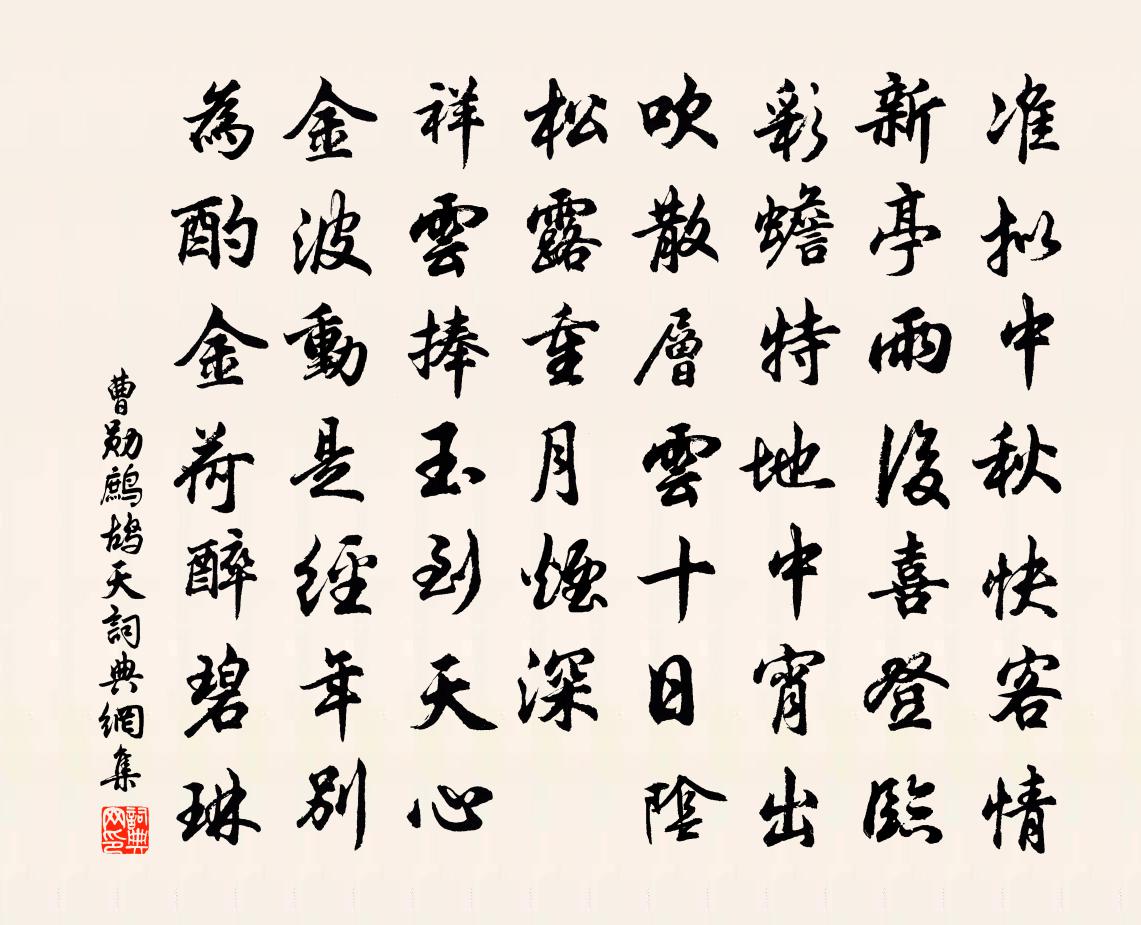 准拟中秋快客情
新亭雨後喜登臨
彩蟾特地中宵出
吹散層雲十日陰
松露重月煙深
祥雲捧玉到天心
金波動是經年別
為酌金荷醉碧琳
曹勛鷓鴣天詞典網集
詞典网印